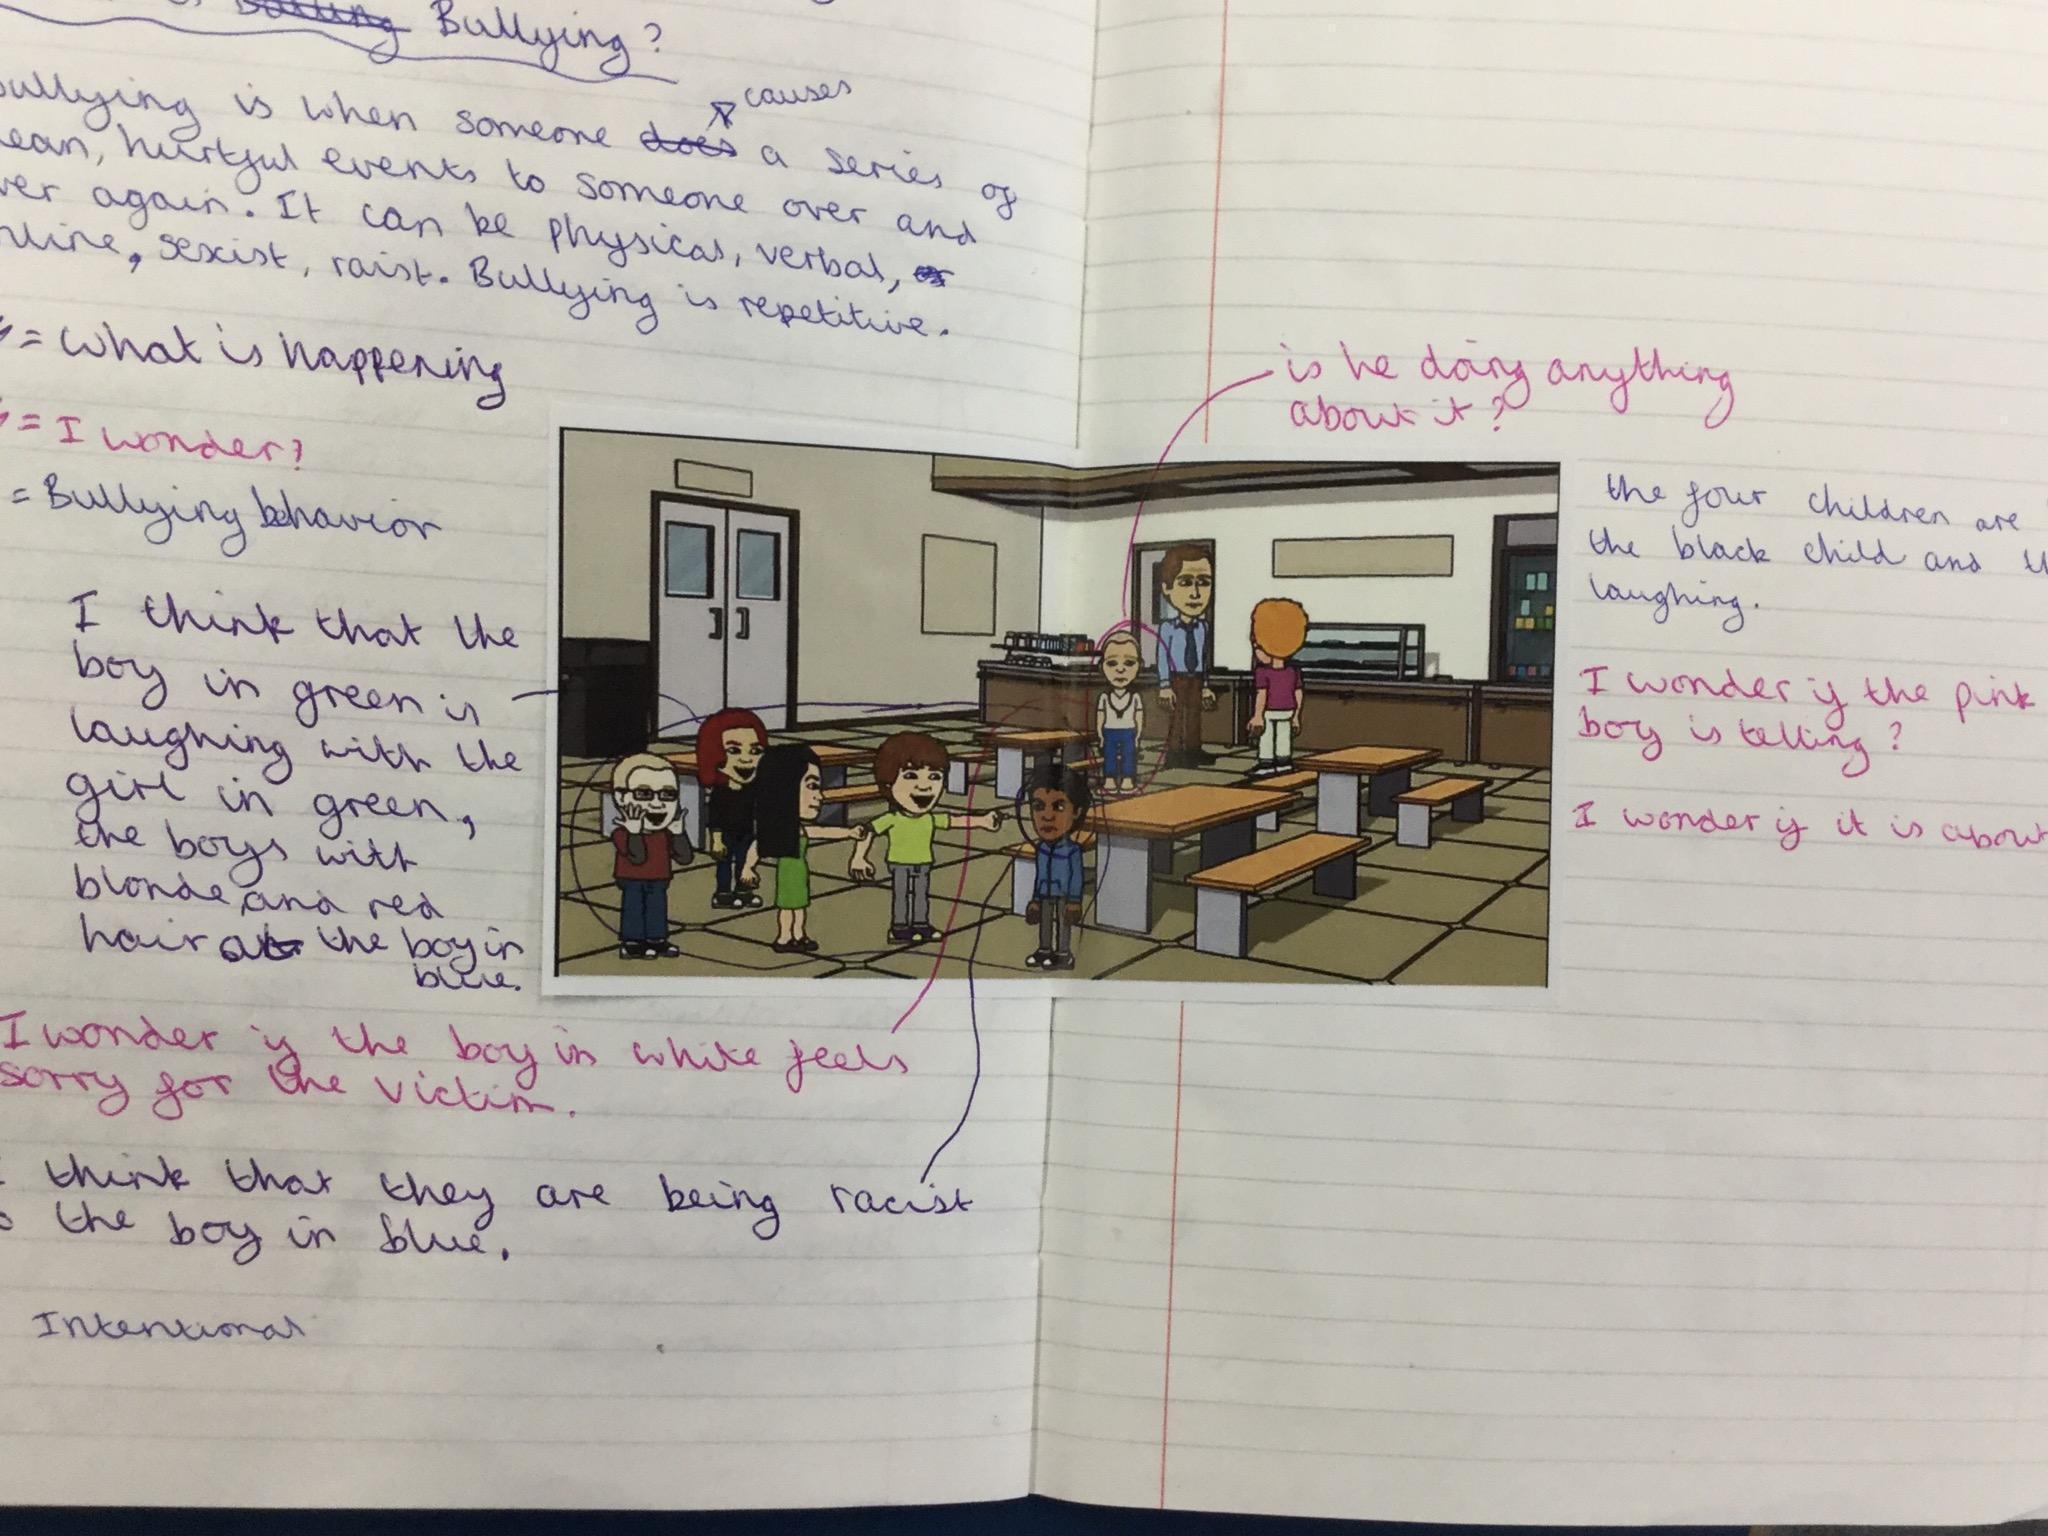 Bullying?
causes
bullying is when someone does a series of
mean, hurtful events to someone over and
over again. It can be physical, verbal, or
online, sexist, raist. Bullying is repetitive.
= What is happening
= I wonder?
= Bullying behavior
I think that the
boy in green is
laughing with the
girl in green,
the boys with
blonde and red
hair at the boy in
blue.
I wonder if the boy in white feels
sorry for the victim.
I think that they are being racist
to the boy in blue.
Intentional
is he doing anything
about it?
the four children are
the black child and
laughing.
I wonder if the pink
boy is telling?
I wonder if it is about